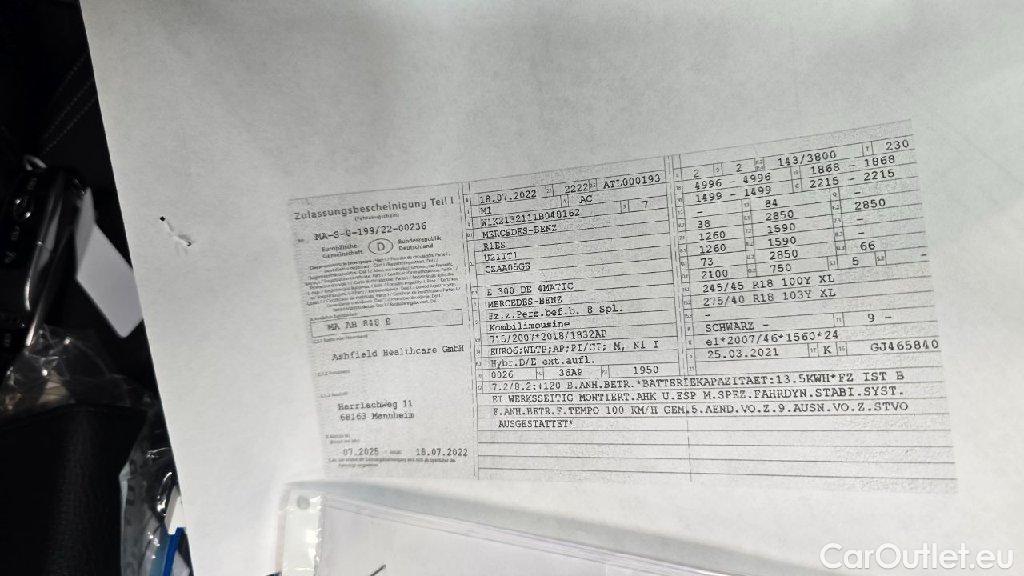 Zulassungsbescheinigung Teil I
(Fahrzeugschein)
MA-S-C-199/22-00236
Europäische Gemeinschaft D Bundesrepublik Deutschland
MA AH 818 E
Ashfield Healthcare GmbH
Harrlachweg 11
68163 Mannheim
07.2025 18.07.2022
18.07.2022 2222 ATL000193
M1 AC 7
W1K2132111B040162
MERCEDES-BENZ
R1ES
UZ11Z1
CZAA05G3
E 300 DE 4MATIC
MERCEDES-BENZ
Fz.z.Pers.bef.b. 8 Spl.
Kombilimousine
715/2007*2018/1832AP
EURO6;WLTP;AP;PI/CI: M, N1 I
Hybr.D/E ext.aufl.
0026 36AP 1950
2 2 143/3800 230
4996 - 4996 1868 - 1868
1499 - 1499 2215 - 2215
- 84 -
38 2850 2850
1260 1590 -
1260 1590 -
73 2850 66
2100 750 5 -
245/45 R18 100Y XL
275/40 R18 103Y XL
-
-
SCHWARZ - 9 -
e1*2007/46*1560*24
25.03.2021 K GJ465840
7.2/8.2:4120 B.ANH.BETR.*BATTERIEKAPAZITAET:13.5KWH*FZ IST B
EI WERKSSEITIG MONTIERT.AHK U.ESP M.SPEZ.FAHRDYN.STABI.SYST.
F.ANH.BETR.F.TEMPO 100 KM/H GEM.5.AEND.VO.Z.9.AUSN.VO.Z.STVO
AUSGESTATTET*
CarOutlet.eu